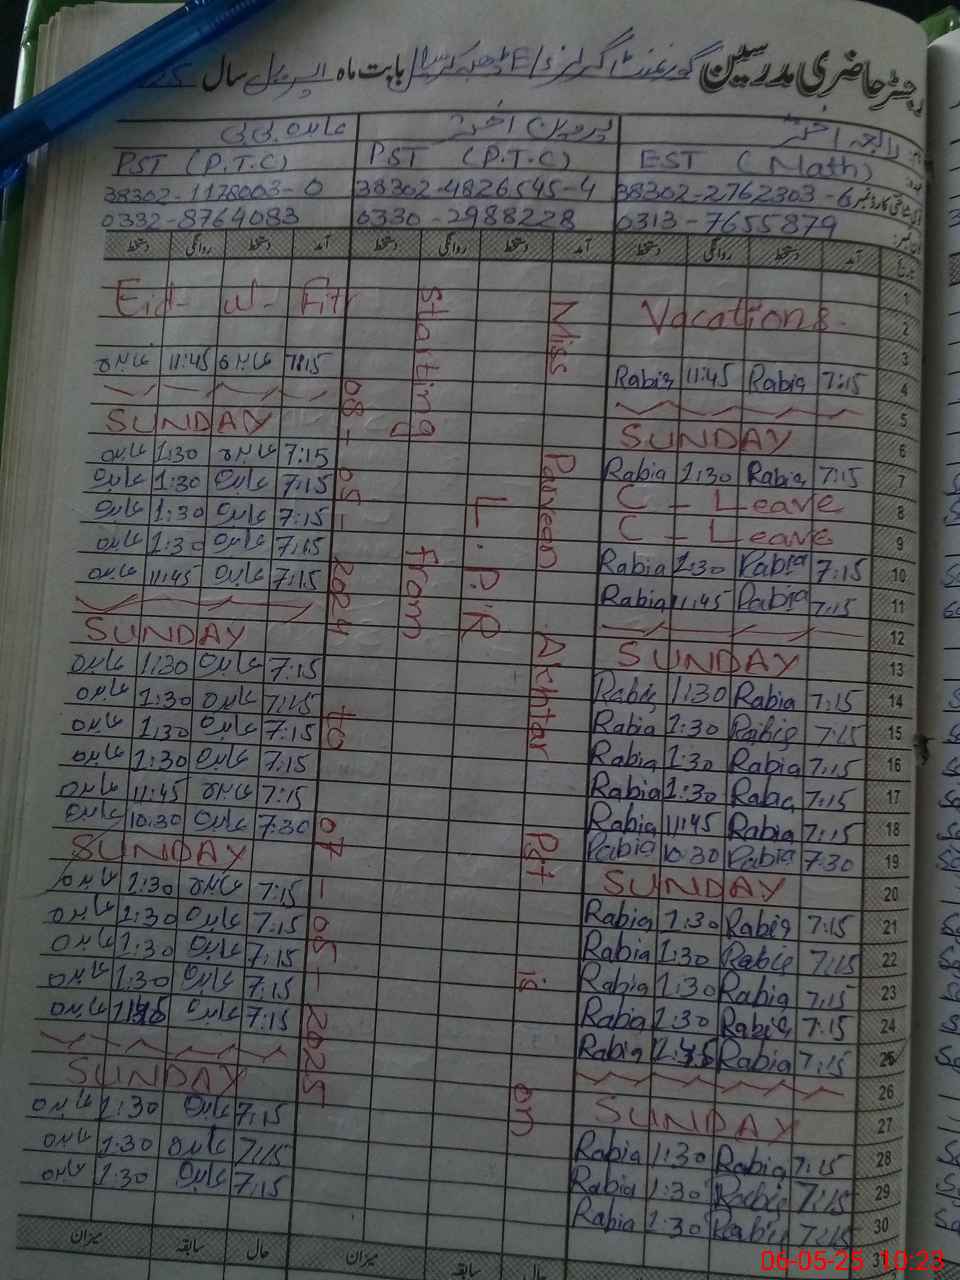 رجسٹر حاضری مدرسین گورنمنٹ گرلز بابت ماہ اپریل سال
رابعہ اختر پروین اختر عابدہ بی بی
EST (Math) PST (P.T.C) PST (P.T.C)
38302-2762303-6 38302-4826545-4 38302-1178003-0
0313-7655879 0330-2988228 0332-8764083
تاریخ آمد دستخط روانگی دستخط آمد دستخط روانگی دستخط آمد دستخط روانگی دستخط
1
2 Vacations Eid-ul-Fitr
3
4 7:15 Rabia 11:45 Rabia 7:15 عابدہ 11:45 عابدہ
5
6 SUNDAY SUNDAY
7 7:15 Rabia 1:30 Rabia 7:15 عابدہ 1:30 عابدہ
8 C - Leave 7:15 عابدہ 1:30 عابدہ
9 C - Leave 7:15 عابدہ 1:30 عابدہ
10 7:15 Rabia 1:30 Rabia 7:15 عابدہ 1:30 عابدہ
11 7:15 Rabia 11:45 Rabia 7:15 عابدہ 11:45 عابدہ
12
13 SUNDAY SUNDAY
14 7:15 Rabia 1:30 Rabia 7:15 عابدہ 1:30 عابدہ
15 7:15 Rabia 1:30 Rabia 7:15 عابدہ 1:30 عابدہ
16 7:15 Rabia 1:30 Rabia 7:15 عابدہ 1:30 عابدہ
17 7:15 Rabia 1:30 Rabia 7:15 عابدہ 1:30 عابدہ
18 7:15 Rabia 11:45 Rabia 7:15 عابدہ 11:45 عابدہ
19 7:30 Rabia 10:30 Rabia 7:30 عابدہ 10:30 عابدہ
20 SUNDAY SUNDAY
21 7:15 Rabia 1:30 Rabia 7:15 عابدہ 1:30 عابدہ
22 7:15 Rabia 1:30 Rabia 7:15 عابدہ 1:30 عابدہ
23 7:15 Rabia 1:30 Rabia 7:15 عابدہ 1:30 عابدہ
24 7:15 Rabia 1:30 Rabia 7:15 عابدہ 1:30 عابدہ
25 7:15 Rabia Rabia 7:15 عابدہ عابدہ
26
27 SUNDAY SUNDAY
28 7:15 Rabia 1:30 Rabia 7:15 عابدہ 1:30 عابدہ
29 7:15 Rabia 1:30 Rabia 7:15 عابدہ 1:30 عابدہ
30 7:15 Rabia 1:30 Rabia 7:15 عابدہ 1:30 عابدہ
31
Miss Parveen Akhtar Pst is on
L.P.R
Starting from
08-05-2024 to 07-05-2025
حال سابقہ میزان حال سابقہ میزان
06-05-25 10:23